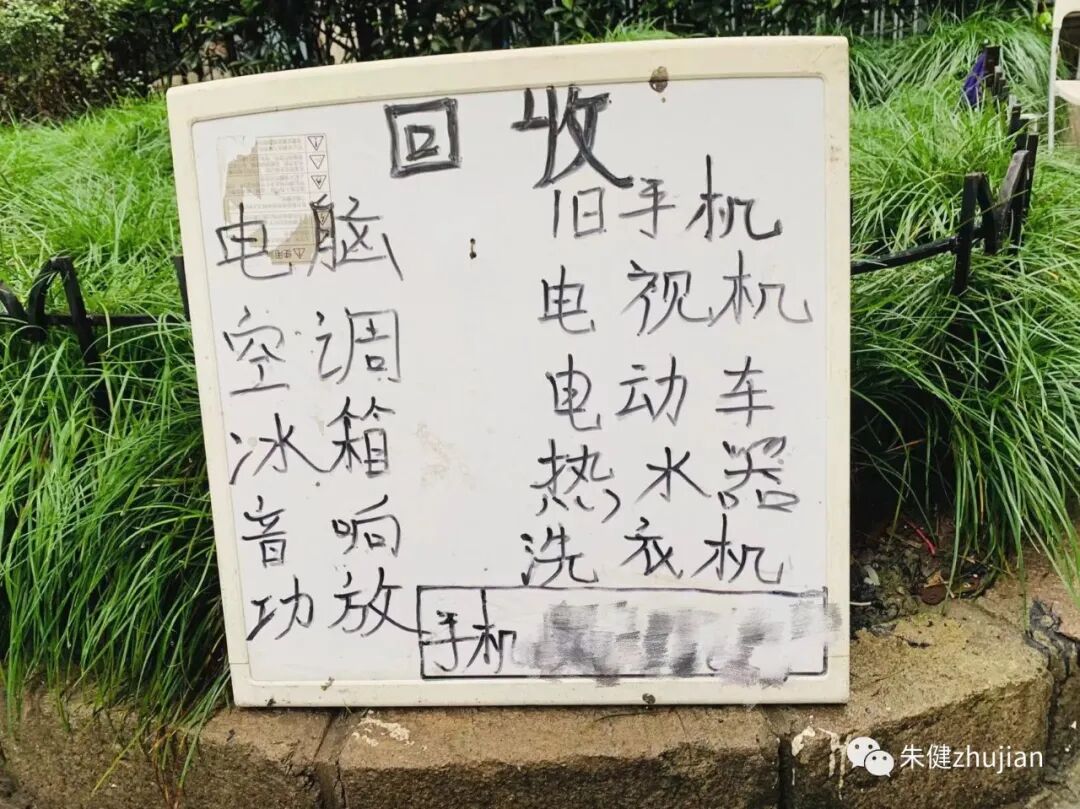 回收
电脑
空调
冰箱
音响
功放
旧手机
电视机
电动车
热水器
洗衣机
手机
朱健zhujian